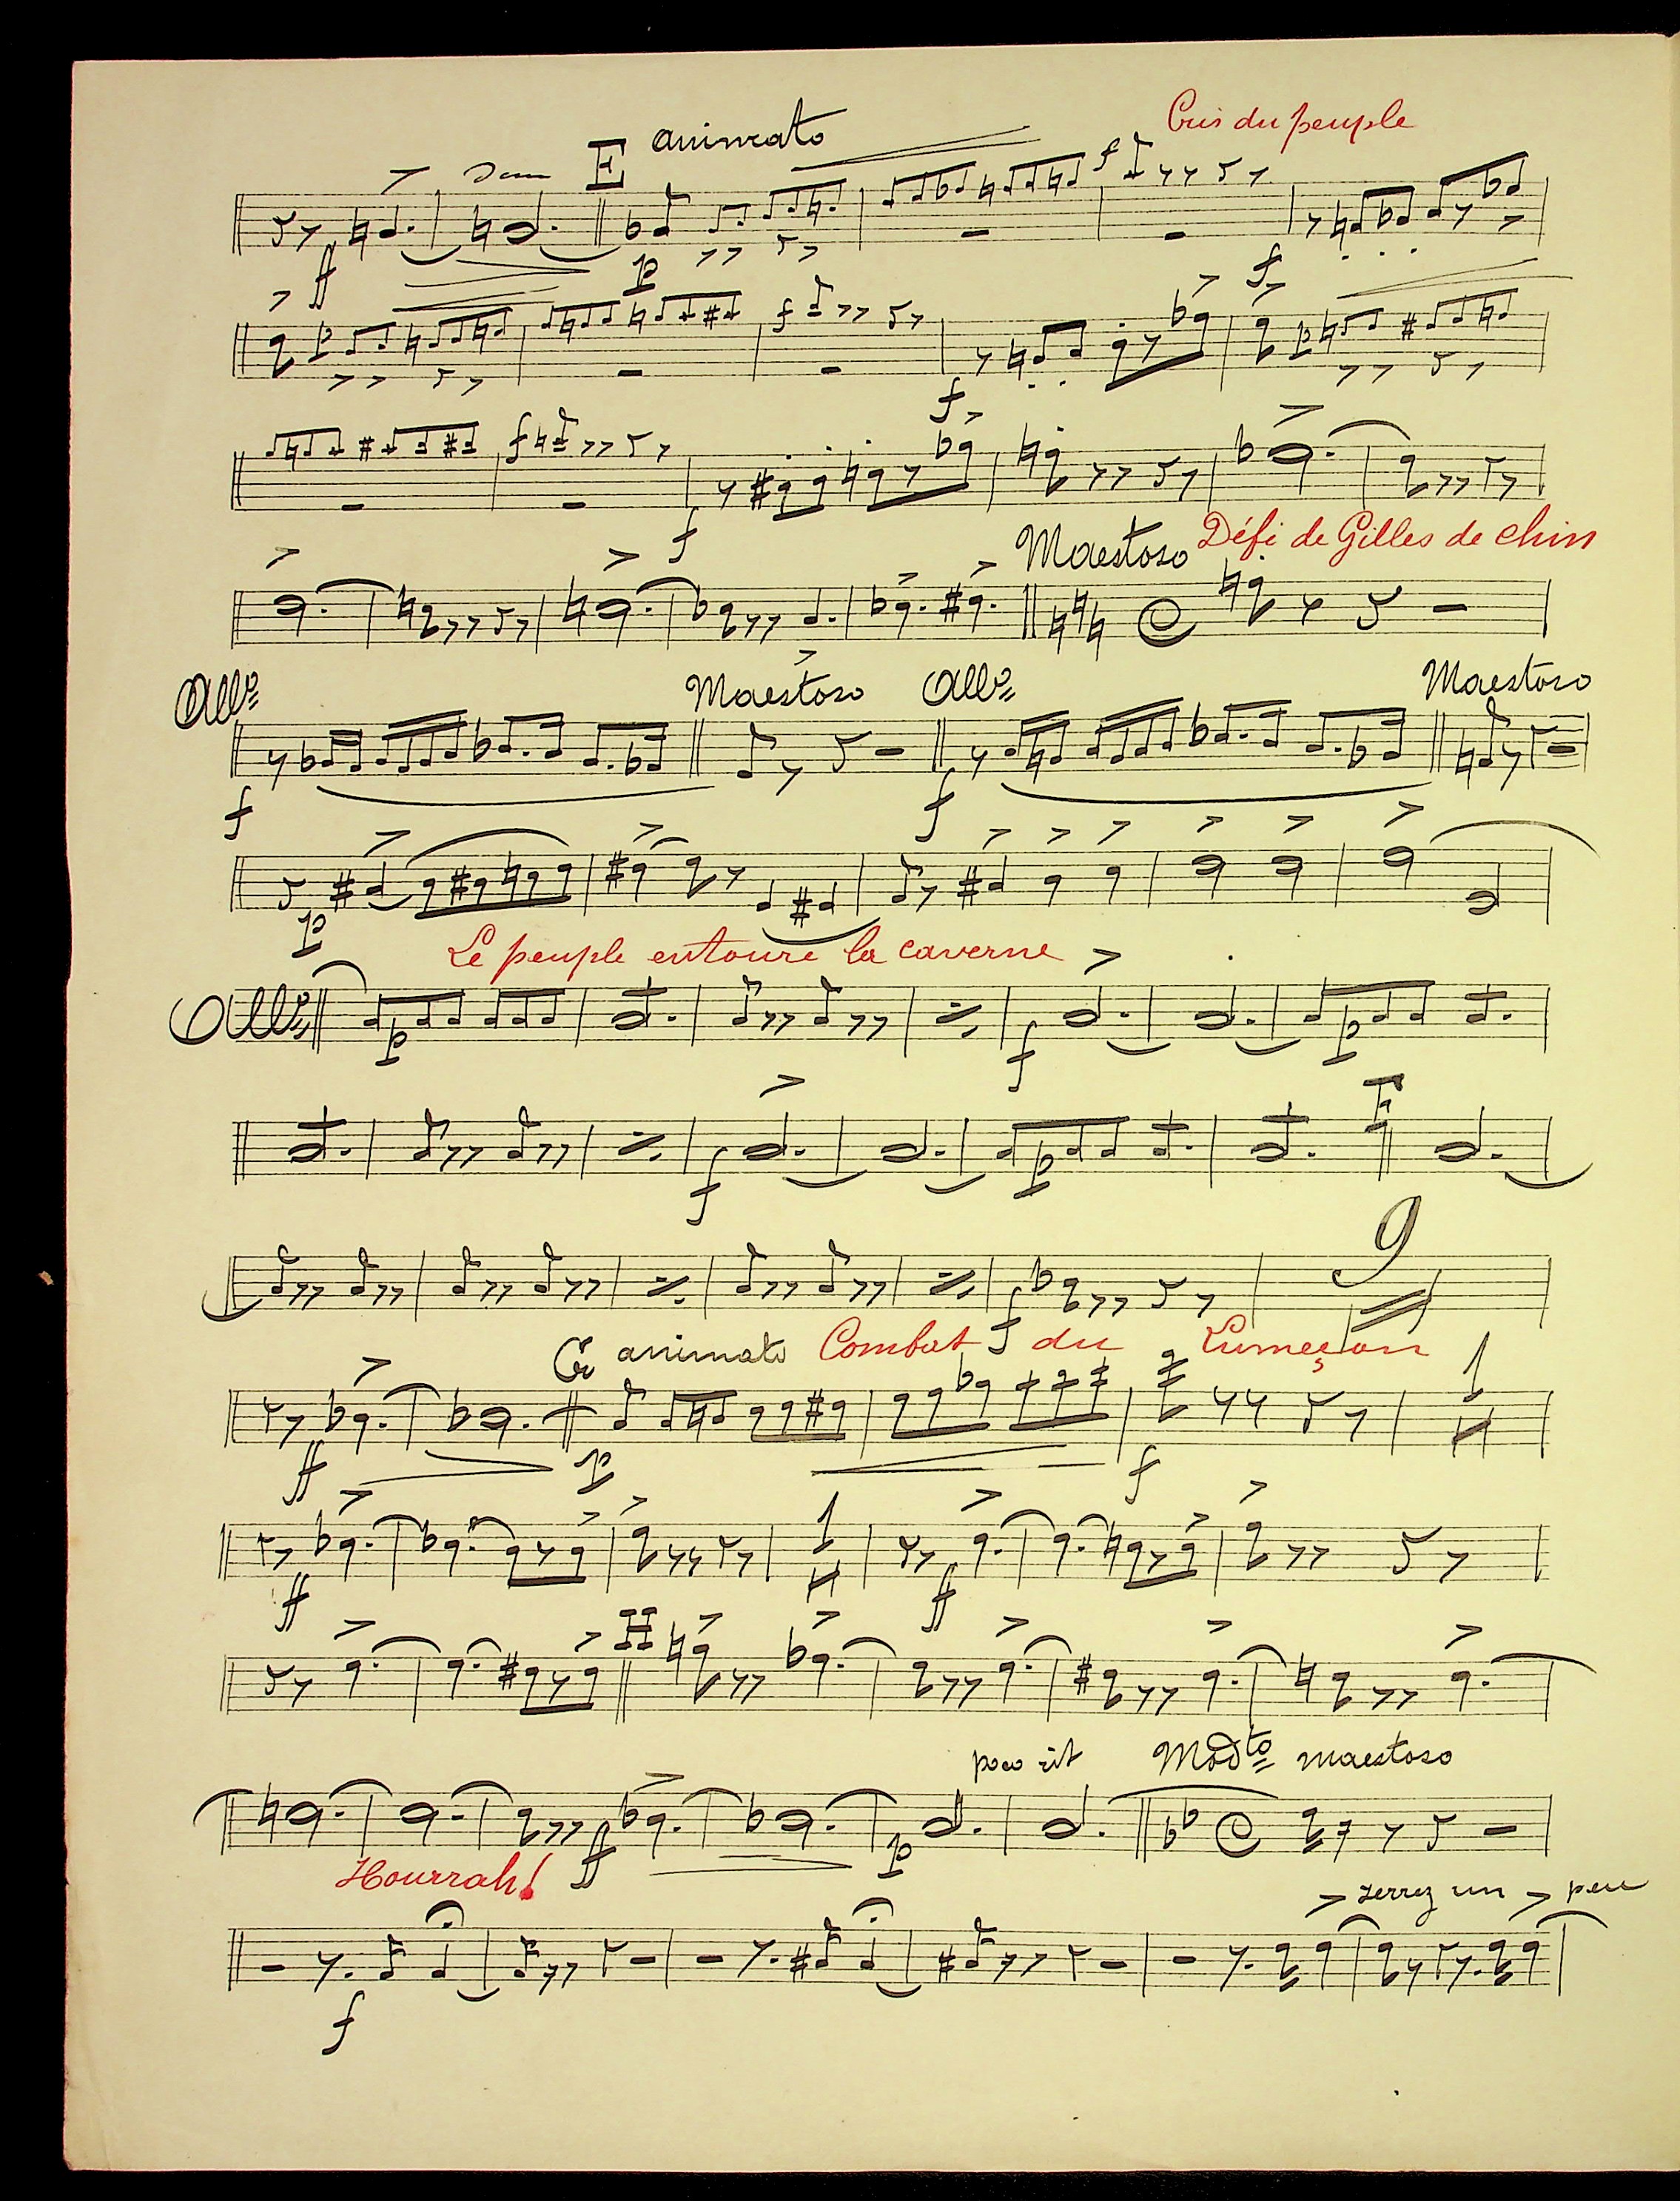 E animato
Cris du peuple
ff p f f
p f f p
f f
Maestoso Défi de Gilles de Chin
Allº Maestoso Allº Maestoso
f f
p
Le peuple entoure la caverne
Allº p f p
F
f p
9
f
G animato Combat du Lumeçon
1
ff p f
1
ff ff
H
poco rit Modto maestoso
ff p
Hourrah!
serrez un peu
f